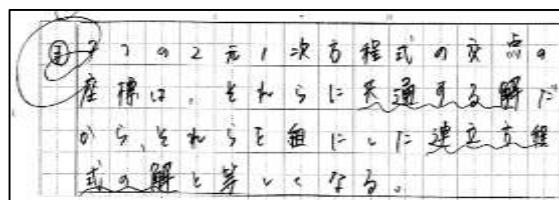 2つの2元1次方程式の交点の
座標は、それらに共通する解だ
から、それらを組にした連立方程
式の解と等しくなる。